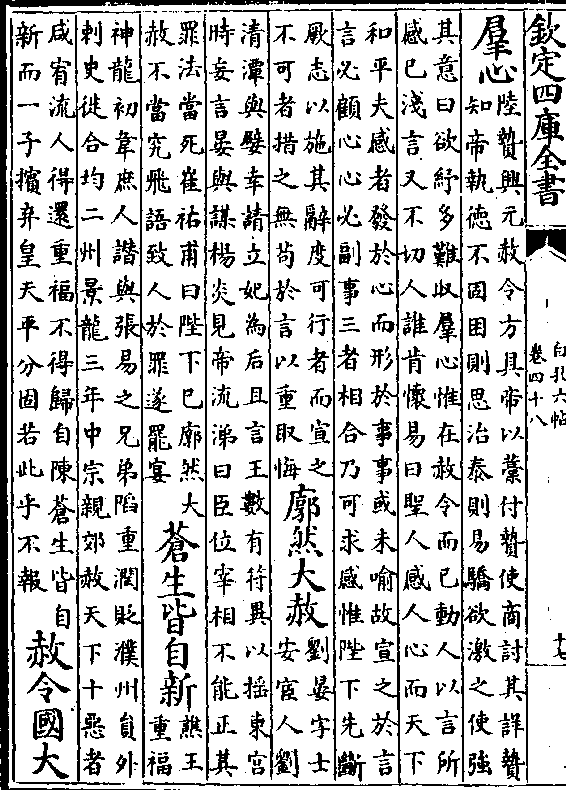 欽定四庫全書
白孔六帖
卷四十八
羣心
陸贄興元赦令方具帝以藁付贄使商討其詳贄
知帝執德不固困則思治泰則易驕欲激之使強
其意曰欲紓多難収羣心惟在赦令而已動人以言所
感已淺言又不切人誰肯懷易曰聖人感人心而天下
和平夫感者發於心而形於事事或未喻故宣之於言
言必顧心心必副事三者相合乃可求感惟陛下先斷
厥志以施其辭度可行者而宣之
不可者措之無苟於言以重取悔
廓然大赦
劉晏字士
安宦人劉
清潭與嬖幸請立妃為后且言王數有符異以揺東宮
時妄言晏與謀楊炎見帝流涕曰臣位宰相不能正其
罪法當死崔祐甫曰陛下已廓然大
赦不當究飛語致人於罪遂罷宴
蒼生皆自新
譙王
重福
神龍初韋庶人譖與張易之兄弟䧟重潤貶濮州員外
刺史徙合均二州景龍三年中宗親郊赦天下十惡者
咸宥流人得還重福不得歸自陳蒼生皆自
新而一子擯弃皇天平分固若此乎不報
赦令國大